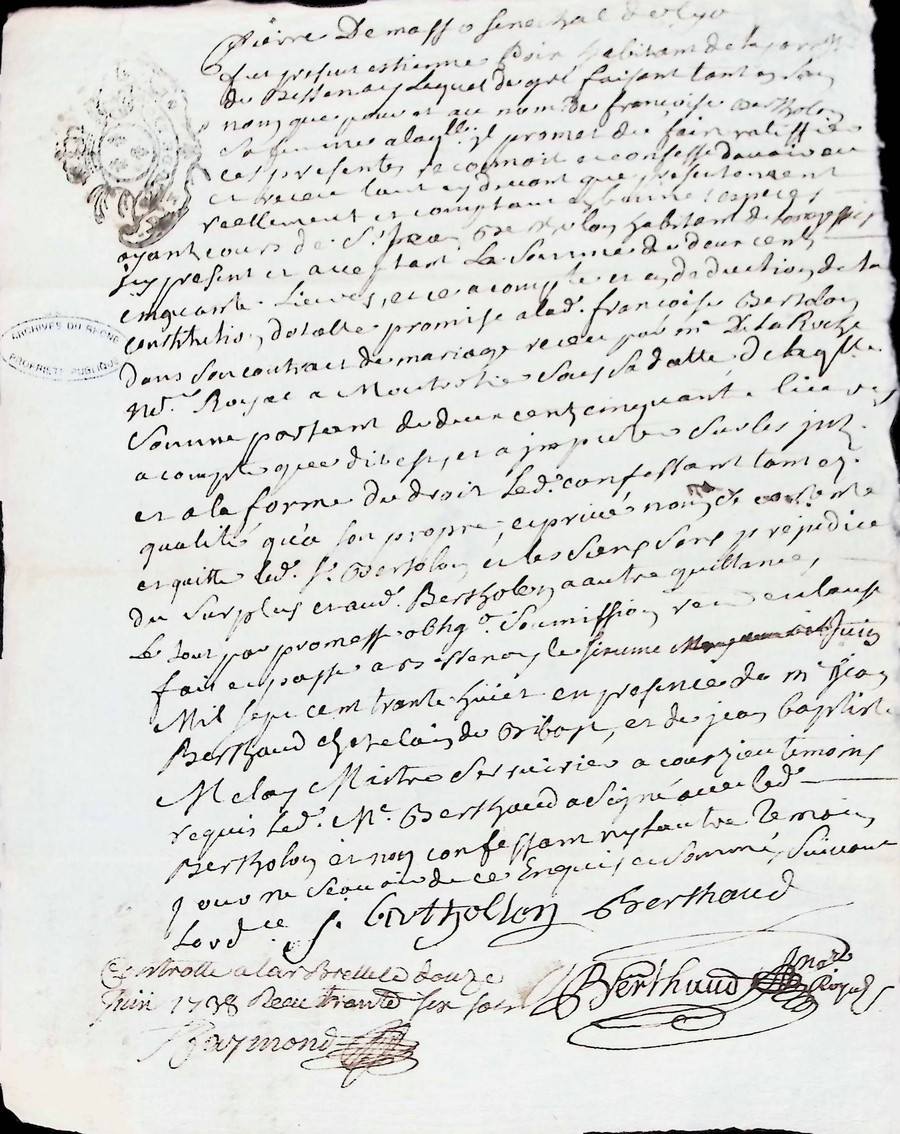 Pierre Demasso senechal de Lyo
fut present estienne Poix habitant de la parr
de Bessenay Lequel de gré faisant tant en son
nom que pour et au nom de françoise Bertholon
sa femme a laqlle il promet de faire ratiffier
ces presentes reconnoit et confesse d'avoir eu
et receu tant cy devant que presentement
reellement et comptant en bonnes especes
ayant cours de Sr. Jean Bertholon habitant de
icy present et acceptant La somme de deux cent
cinquante Livres, et ce a compte et en deduction de la
constitution dotalle promise a lad. françoise Bertholon
dans son contract de mariage receu par me De La Roche
Nre. Royal a Montrotier sous sa datte, de laqlle
Somme portant de deux cent cinquante livres
a compte que dit est, et a imputer sur les
et a la forme du droit Led. confessant tant en
qualité qu'a son propre, et privé nom,
et quitte led. Sr. Bertholon et les siens sans prejudice
du surplus et aud. Bertholon a autre quittance,
Le tout par promesse oblig.o soumission ren clause
fait et passé a Bessenay le Juin
Mil sept cent trante huict en presence de me Jean
Berthaud chatelain de Ribost, et de jean baptiste
Melay Maitre Serrurier a courzieu temoins
requis Led. Me. Berthaud a signé avec led.
Bertholon et non confessant ny l'autre temoin
pour ne sçavoir de ce Enquis et sommés, suivant
Lord.ce
J. Bertholon Berthaud
Controllé a larBrelle le douze
Juin 1738 Receu trante six sols
Berthaud nore Royal
Raymond
ARCHIVES DU RHONE
PROPRIETE PUBLIQUE